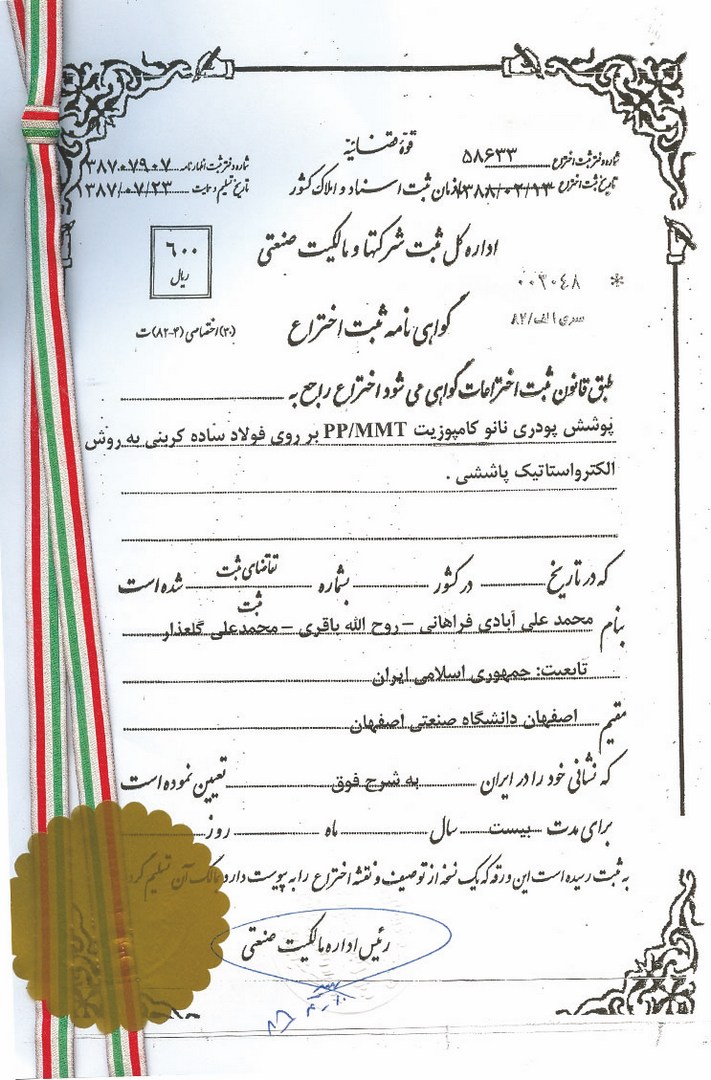 قوهٔ قضائیه
شماره دفتر ثبت اختراع ۵۸۶۳۳
شماره دفتر ثبت اظهارنامه ۳۸۷۰۷۹۰۷
تاریخ ثبت اختراع ۱۳۸۸/۰۲/۱۳
سازمان ثبت اسناد و املاک کشور
تاریخ تسلیم و حمایت ۳۸۷/۰۷/۲۳
اداره کل ثبت شرکتها و مالکیت صنعتی
۶۰۰
ریال
* ۰۰۲۰۴۸
سری ۱ الف/۸۲
گواهی نامه ثبت اختراع
(۳۰) اختصاصی (۴-۸۲) ت
طبق قانون ثبت اختراعات گواهی می شود اختراع راجع به
پوشش پودری نانو کامپوزیت PP/MMT بر روی فولاد ساده کربنی به روش
الکترواستاتیک پاششی .
که در تاریخ در کشور بشماره تقاضای ثبت شده است
ثبت
بنام محمد علی آبادی فراهانی – روح الله باقری – محمدعلی گلعذار
تابعیت: جمهوری اسلامی ایران
مقیم اصفهان دانشگاه صنعتی اصفهان
که نشانی خود را در ایران به شرح فوق تعیین نموده است
برای مدت بیست سال ماه روز
به ثبت رسیده است این ورقه که یک نسخه از توصیف و نقشه اختراع را به پیوست دارد بمالک آن تسلیم گردید
رئیس اداره مالکیت صنعتی